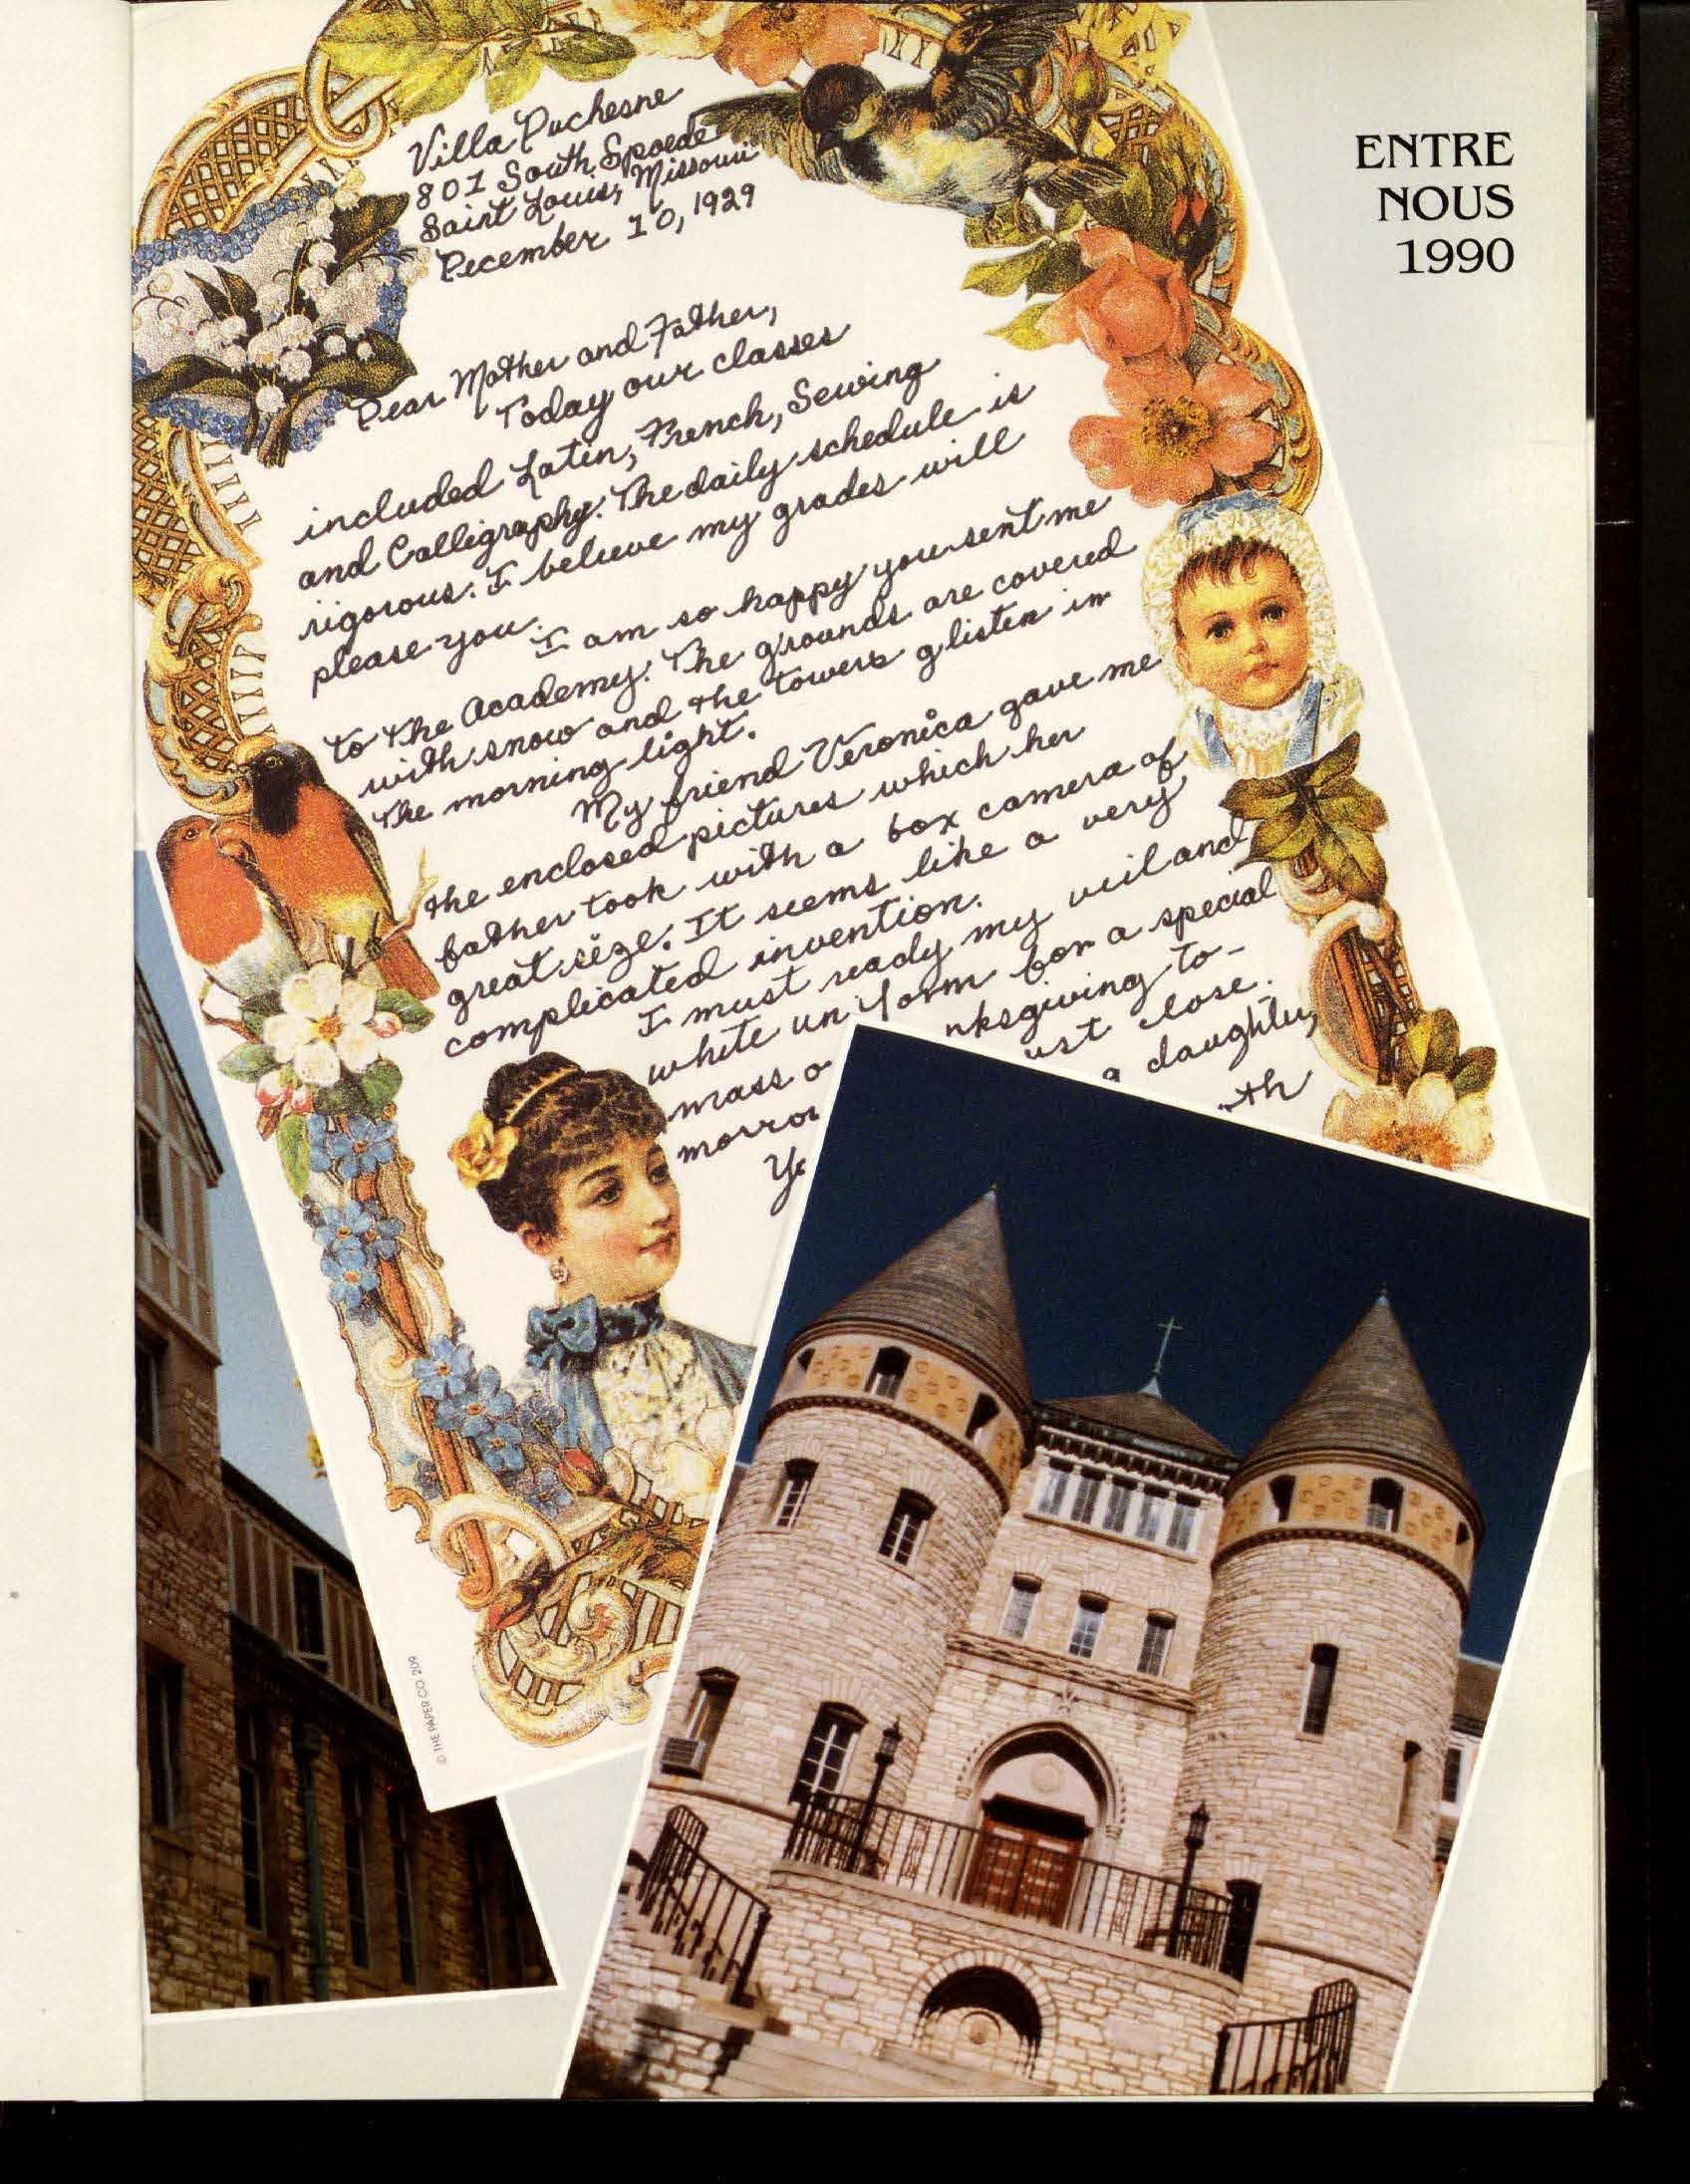 Villa Duchesne
801 South Spoede
Saint Louis, Missouri
December 10, 1929
ENTRE
NOUS
1990
Dear Mother and Father,
Today our classes
included Latin, French, Sewing
and Calligraphy. The daily schedule is
rigorous. I believe my grades will
please you.
I am so happy you sent me
to the Academy. The grounds are covered
with snow and the towers glisten in
the morning light.
My friend Veronica gave me
the enclosed pictures which her
father took with a box camera of
great size. It seems like a very
complicated invention.
I must ready my veil and
white uniform for a special
mass o nksgiving to-
morro ust close.
Yo g daughter,
th
© THE PAPER CO. 209